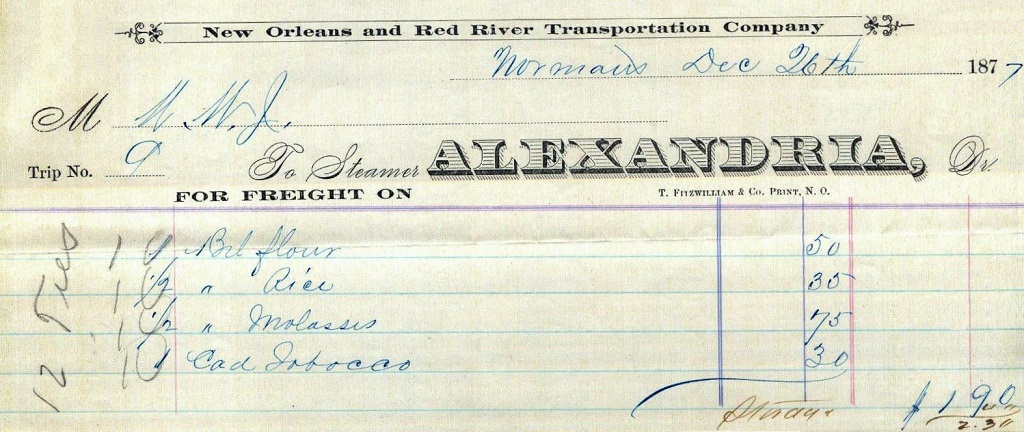 New Orleans and Red River Transportation Company
Normans Dec 26th 1877
M M. W. J.
Trip No. 9 To Steamer ALEXANDRIA, Dr.
FOR FREIGHT ON T. Fitzwilliam & Co. Print, N. O.
1 Brl flour 50
1/2 " Rice 35
1/2 " Molasses 75
1 Cad Tobacco 30
$1.90
2.30
12 Ties